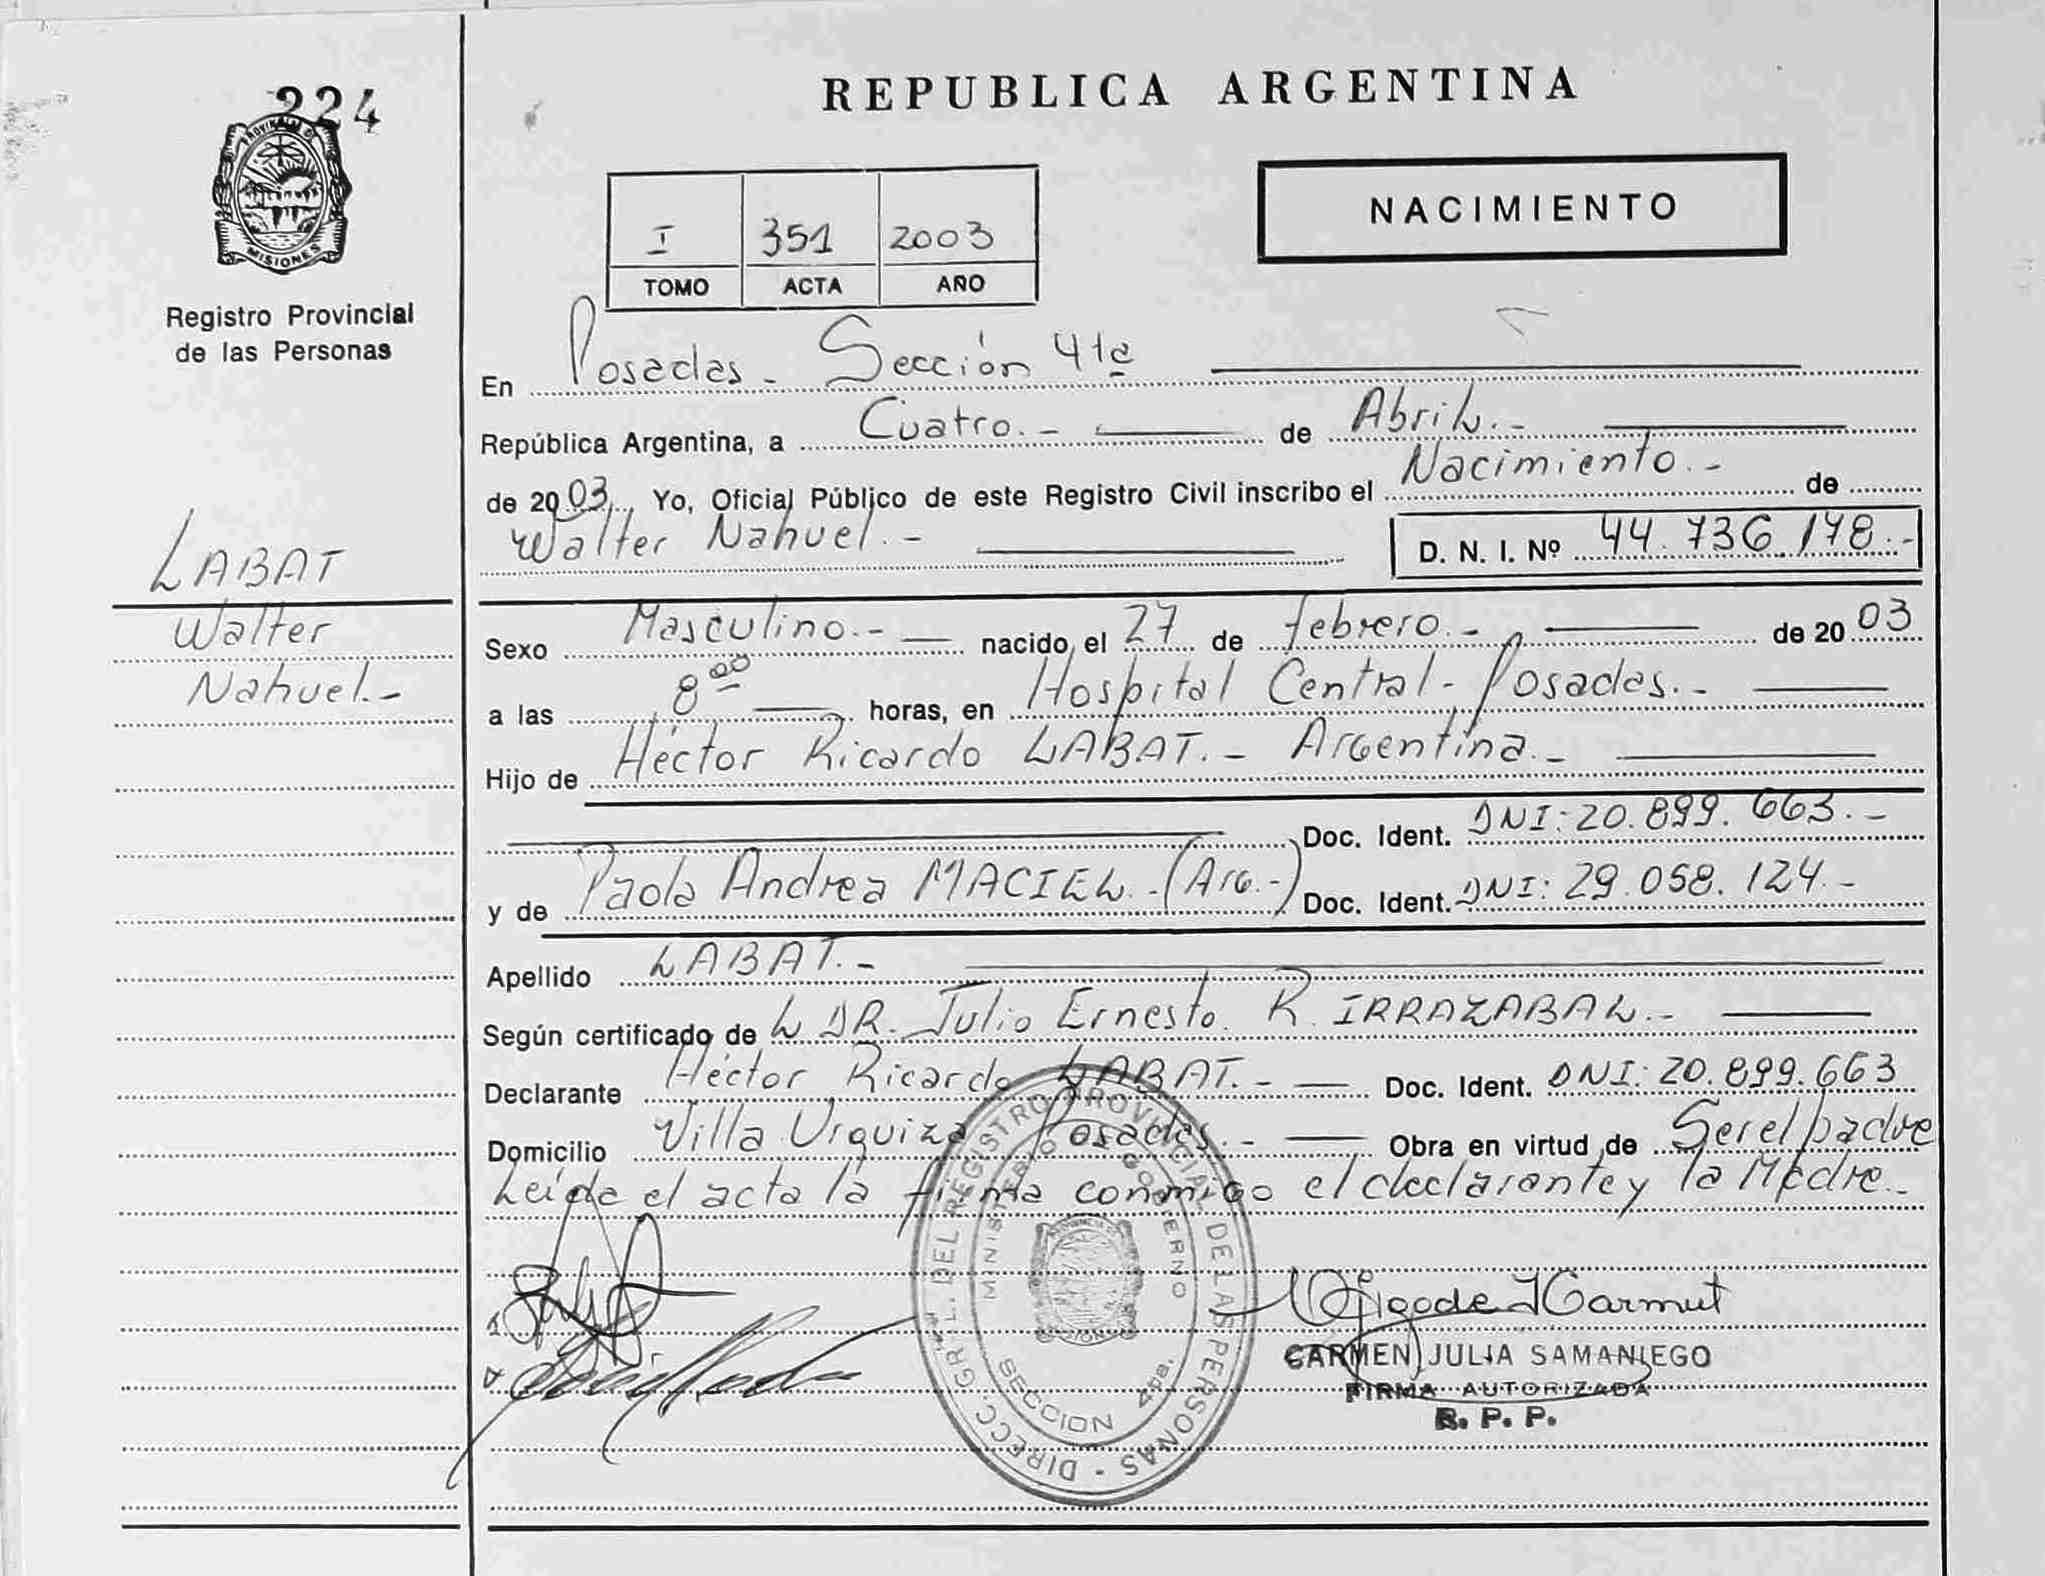 224
PROVINCIA DE
MISIONES
Registro Provincial
de las Personas
LABAT
Walter
Nahuel.-
REPUBLICA ARGENTINA
NACIMIENTO
I 351 2003
TOMO ACTA AÑO
En Posadas - Sección 4ta
República Argentina, a Cuatro.- de Abril.-
de 2003, Yo, Oficial Público de este Registro Civil inscribo el Nacimiento.- de
Walter Nahuel.- D. N. I. Nº 44.736.178.-
Sexo Masculino.- nacido el 27 de febrero.- de 2003
a las 8 00 horas, en Hospital Central - Posadas.-
Hijo de Héctor Ricardo LABAT.- Argentina.-
Doc. Ident. DNI: 20.899.663.-
y de Paola Andrea MACIEL.- (Arg.-) Doc. Ident. DNI: 29.058.124.-
Apellido LABAT.-
Según certificado de L DR. Julio Ernesto R. IRRAZABAL.-
Declarante Héctor Ricardo LABAT.- Doc. Ident. DNI: 20.899.663
Domicilio Villa Urquiza Posadas.- Obra en virtud de Ser el padre
Leída el acta la firma conmigo el declarante y la Madre.-
DIRECC. GRAL. DEL REGISTRO PROVINCIAL DE LAS PERSONAS -
MINISTERIO GOBIERNO
SECCION 4ta.
CARMEN JULIA SAMANIEGO
FIRMA AUTORIZADA
R. P. P.